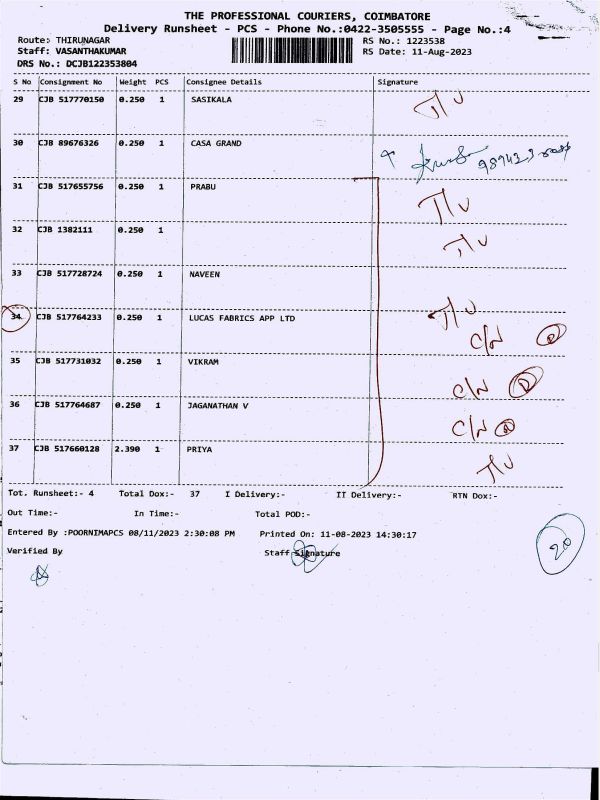 THE PROFESSIONAL COURIERS, COIMBATORE
Delivery Runsheet - PCS - Phone No.:0422-3505555 - Page No.:4
Route: THIRUNAGAR RS No.: 1223538
Staff: VASANTHAKUMAR RS Date: 11-Aug-2023
DRS No.: DCJB122353804
S No Consignment No Weight PCS Consignee Details Signature
29 CJB 517770150 0.250 1 SASIKALA
30 CJB 89676326 0.250 1 CASA GRAND
31 CJB 517655756 0.250 1 PRABU
32 CJB 1382111 0.250 1
33 CJB 517728724 0.250 1 NAVEEN
34 CJB 517764233 0.250 1 LUCAS FABRICS APP LTD
C/N R
35 CJB 517731032 0.250 1 VIKRAM
C/N R
36 CJB 517764687 0.250 1 JAGANATHAN V C/N R
37 CJB 517660128 2.390 1 PRIYA
Tot. Runsheet:- 4 Total Dox:- 37 I Delivery:- II Delivery:- RTN Dox:-
Out Time:- In Time:- Total POD:-
Entered By :POORNIMAPCS 08/11/2023 2:30:08 PM Printed On: 11-08-2023 14:30:17
Verified By Staff Signature
20